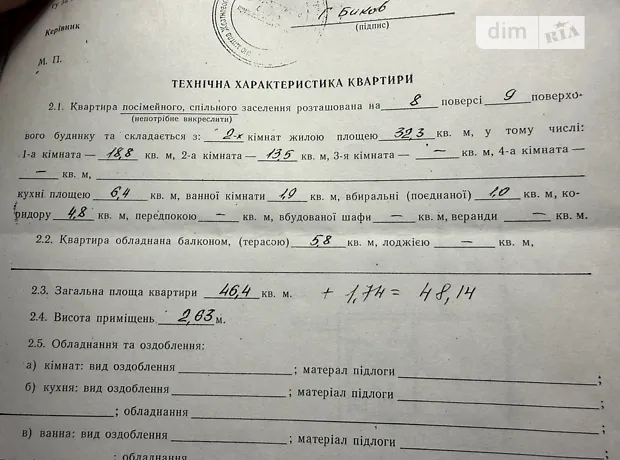 Керівник
Г Биков
(підпис)
dim RIA
М. П.
ТЕХНІЧНА ХАРАКТЕРИСТИКА КВАРТИРИ
2.1. Квартира посімейного, спільного заселення розташована на 8 поверсі 9 поверхо-
(непотрібне викреслити)
вого будинку та складається з: 2-х кімнат жилою площею 32,3 кв. м, у тому числі:
1-а кімната — 18,8 кв. м, 2-а кімната — 13,5 кв. м, 3-я кімната — — кв. м, 4-а кімната —
— кв. м,
кухні площею 6,4 кв. м, ванної кімнати 1,9 кв. м, вбиральні (поєднаної) 1,0 кв. м, ко-
ридору 4,8 кв. м, передпокою — кв. м, вбудованої шафи — кв. м, веранди — кв. м.
2.2. Квартира обладнана балконом, (терасою) 5,8 кв. м, лоджією — кв. м,
2.3. Загальна площа квартири 46,4 кв. м. + 1,74 = 48,14
2.4. Висота приміщень 2,63 м.
2.5. Обладнання та оздоблення:
а) кімнат: вид оздоблення ; матерал підлоги ;
б) кухня: вид оздоблення ; матеріал підлоги ;
; обладнання ;
в) ванна: вид оздоблення ; матеріал підлоги ;
; обладнання